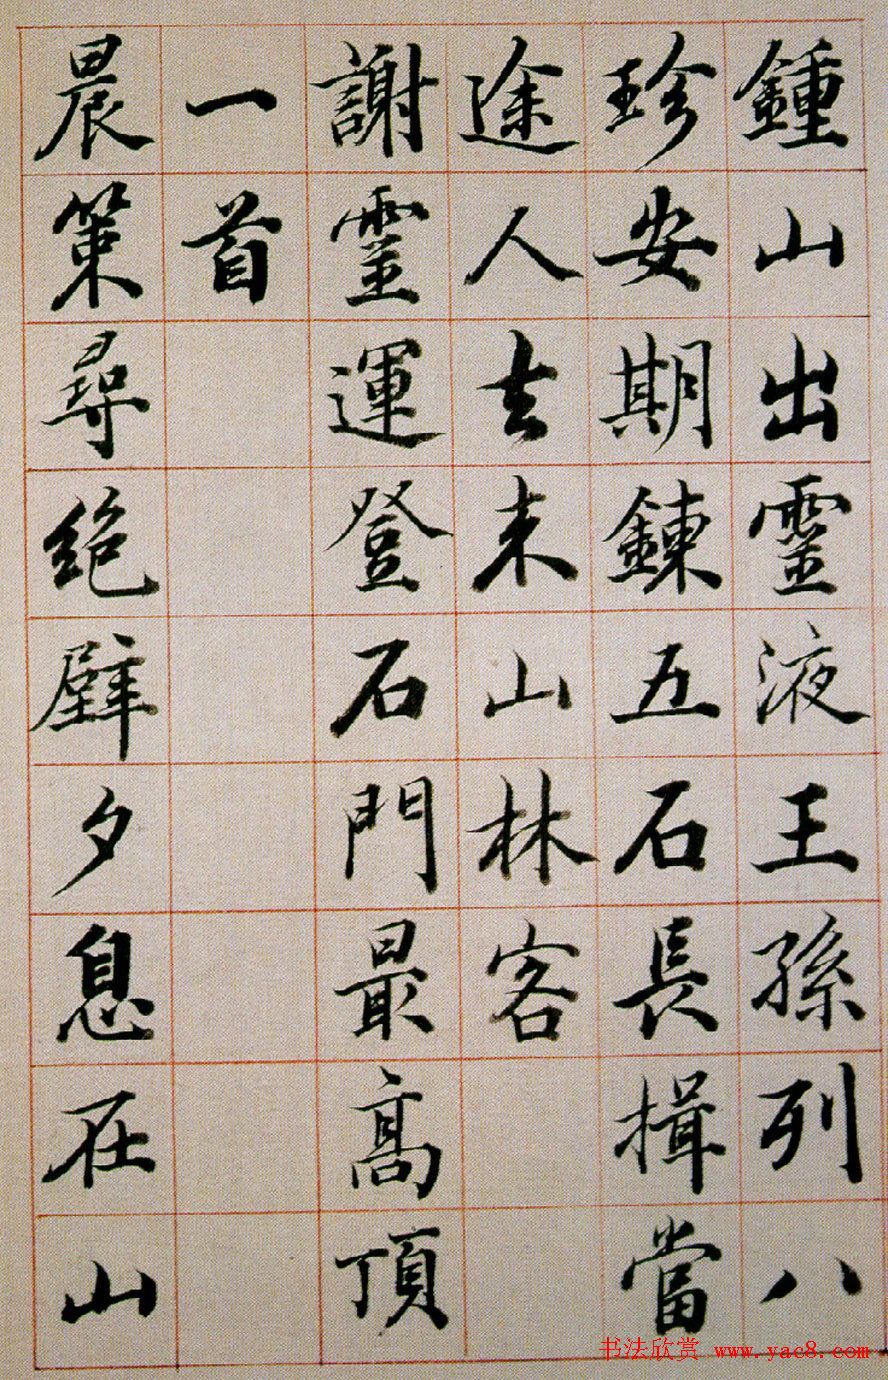 鍾山出靈液王孫列八
珍安期鍊五石長揖當
途人去来山林客
謝靈運登石門最高頂
一首
晨策尋絕壁夕息在山
书法欣赏 www.yac8.com